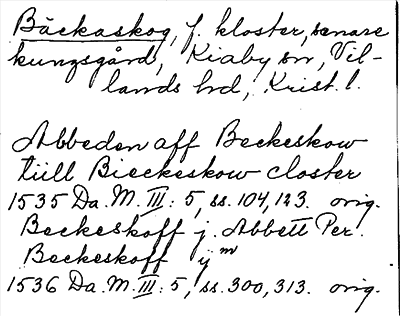 Bäckaskog, f. kloster, senare
kungsgård, Kiaby sn, Vil-
lands hd, Krist. l.
Abbeden aff Beckeskow
tiill Bieckeskow closter
1535 Da. M. III: 5, ss. 104, 123. orig.
Beckeskoff j. Abbett Per.
Beckeskoff ij m
1536 Da. M. III: 5, ss. 300, 313. orig.